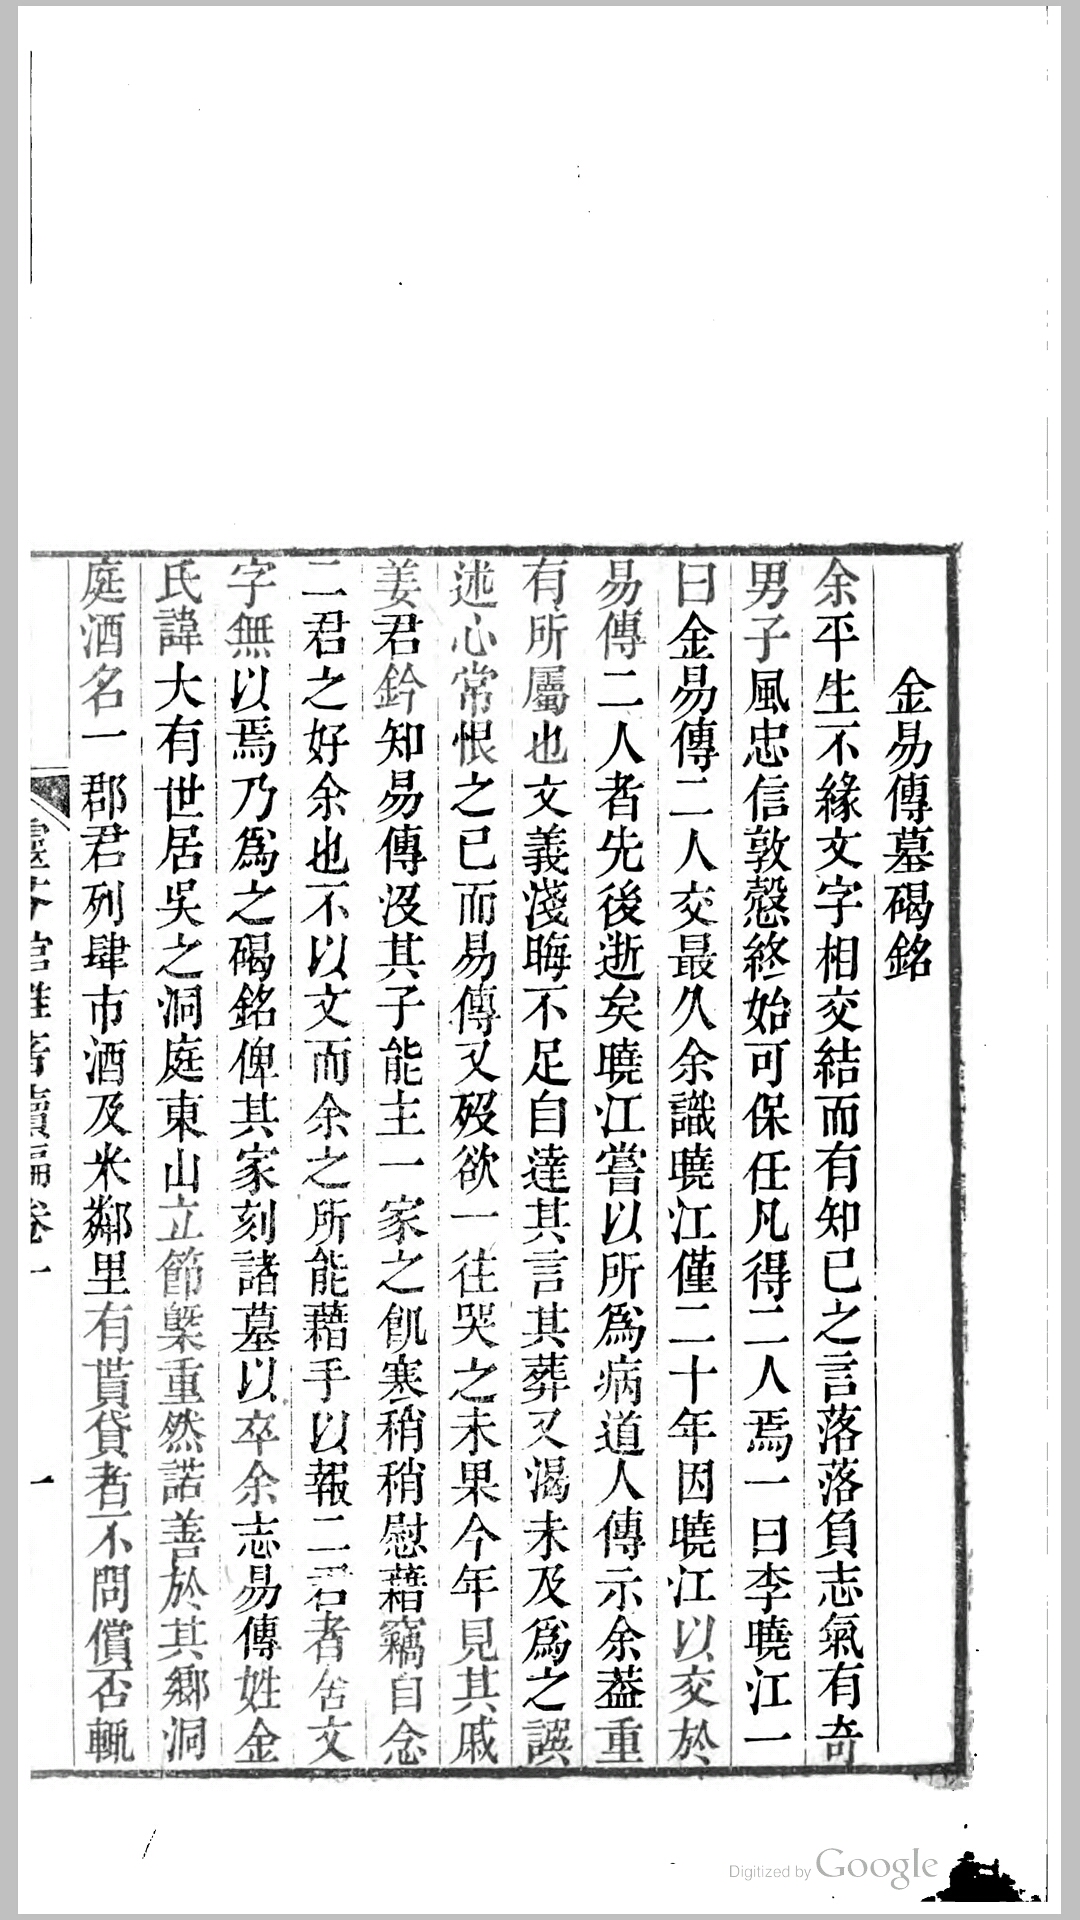 金易傳墓碣銘
余平生不緣文字相交結而有知已之言落落負志氣有奇
男子風忠信敦愨終始可保任凡得二人焉一曰李曉江一
曰金易傳二人交最久余識曉江僅二十年因曉江以交於
易傳二人者先後逝矣曉江嘗以所爲病道人傳示余葢重
有所屬也文義淺晦不足自達其言其葬又渴未及爲之誤
述心常恨之已而易傳又歿欲一往哭之未果今年見其戚
姜君鈐知易傳沒其子能主一家之飢寒稍稍慰藉竊自念
二君之好余也不以文而余之所能藉手以報二君者舍文
字無以焉乃爲之碣銘俾其家刻諸墓以卒余志易傳姓金
氏諱大有世居吳之洞庭東山立節槩重然諾善於其鄉洞
庭酒名一郡君列肆市酒及米鄰里有貰貸者不問償否輒
館雜著續編卷一
一
Digitized by Google